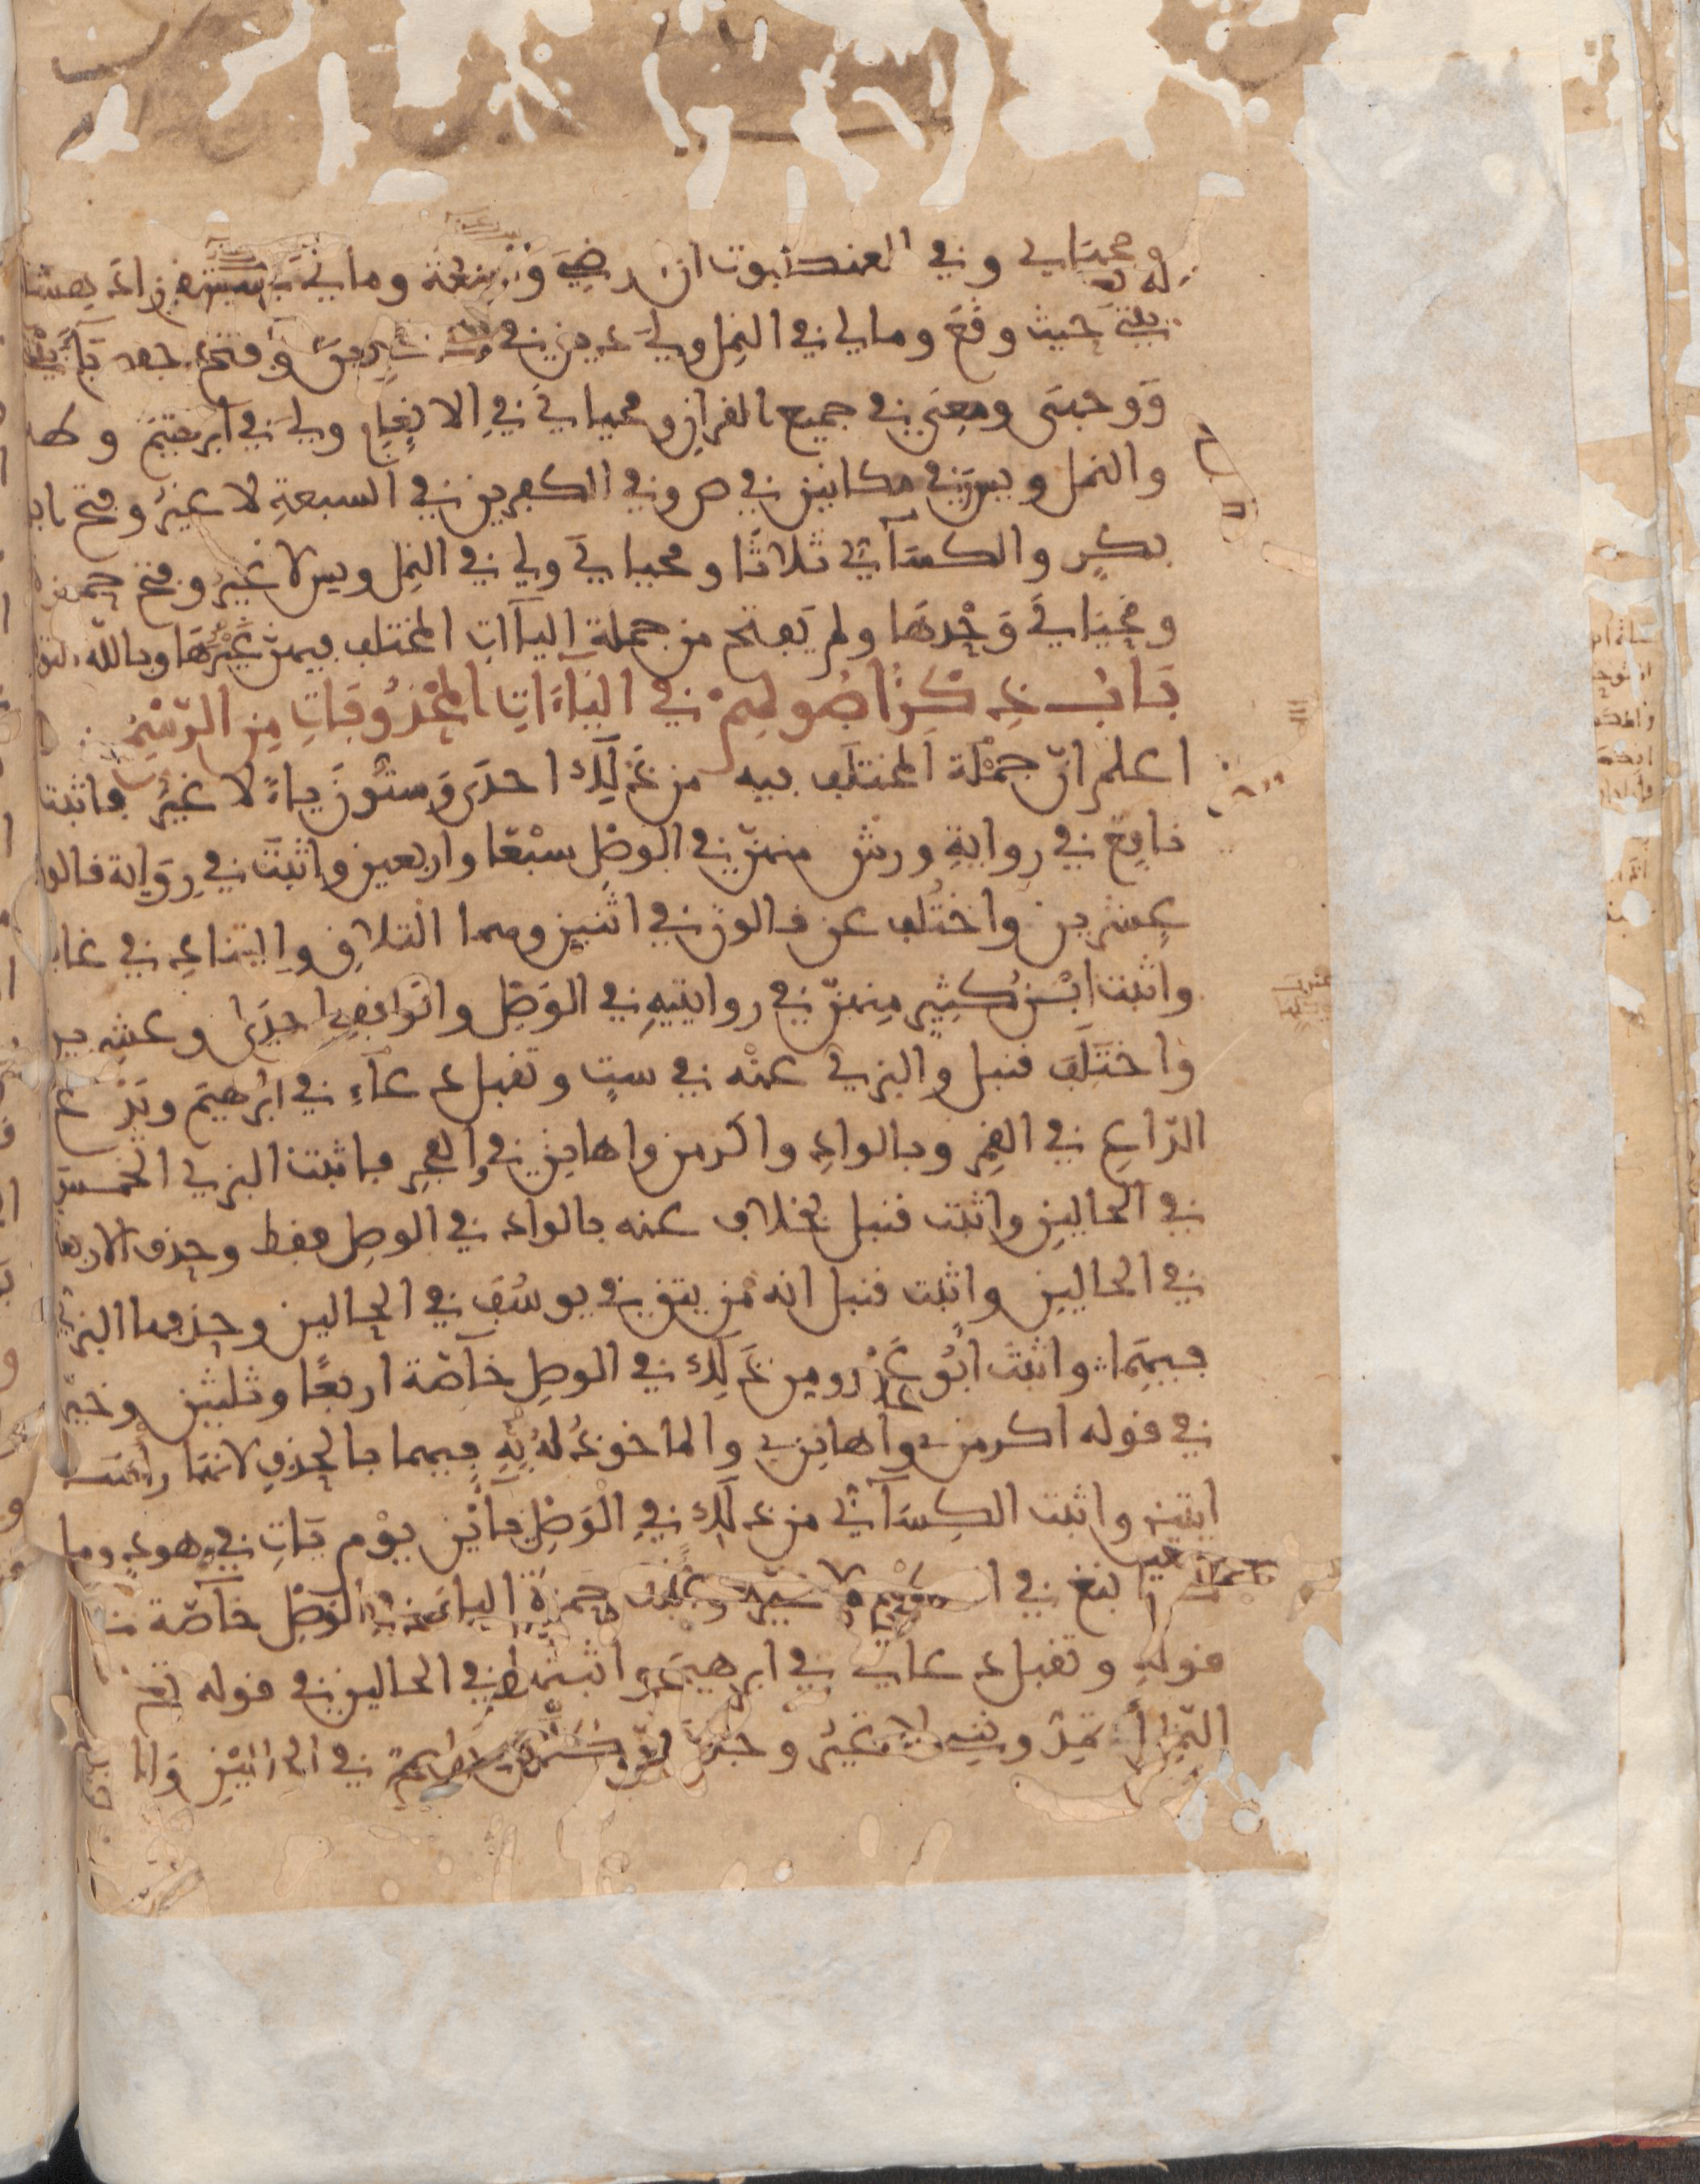 ومحياي وفي العنكبوت ان رضي واسعة وما لي في يس زاد هشا
بيتي حيث وقع وما لي في النمل ولي دين في وفتح حفص
ووجهي ومعي في جميع القران ومحياي في الانعام ولي في ابرهيم وطه
والنمل ويس وفي مكانين في ص وفي الكفرين في السبعة لا غير وفتح ابو
بكر والكسآئي ثلاثا ومحياي ولي في النمل ويس لا غير وفتح حمزة
ومحياي وحدها ولم يفتح من جملة اليآات المختلف فيهن غيرها وبالله التو
باب ذكر اصولهم في اليآءات المحذوفات من الرسم
اعلم ان جملة المختلف فيه من ذلك احدى وستون ياء لا غير فاثبت
نافع في رواية ورش منهن في الوصل سبعا واربعين واثبت في رواية قالو
عشرين واختلف عن قالون في اثنين وهما التلاق والتناد في غافر
واثبت ابن كثير منهن في روايتيه في الوصل والوقف احدى وعشرين
واختلف قنبل والبزي عنه في ست وتقبل دعاء في ابرهيم ويدع
الداع في القمر وبالواد واكرمن واهانن في والفجر فاثبت البزي الخمس
في الحالين واثبت قنبل بخلاف عنه بالواد في الوصل فقط وحذف الاربعة
في الحالين واثبت قنبل انه من يتق في يوسف في الحالين وحذفها البزي
فيهما واثبت ابو عمرو من ذلك في الوصل خآصة اربعا وثلثين وخير
في قوله اكرمن واهانن والماخوذ له به فيهما بالحذف لانهما راس
ايتين واثبت الكسآئي من ذلك في الوصل يائين يوم يات في هود وما
كنا نبغ في الكهف لا غير واثبت حمزة الياء في الوصل خآصة في
قوله وتقبل دعاي في ابرهيم واثبتها في الحالين في قوله في
النمل اتمدونني لا غير وحذف في الحالين